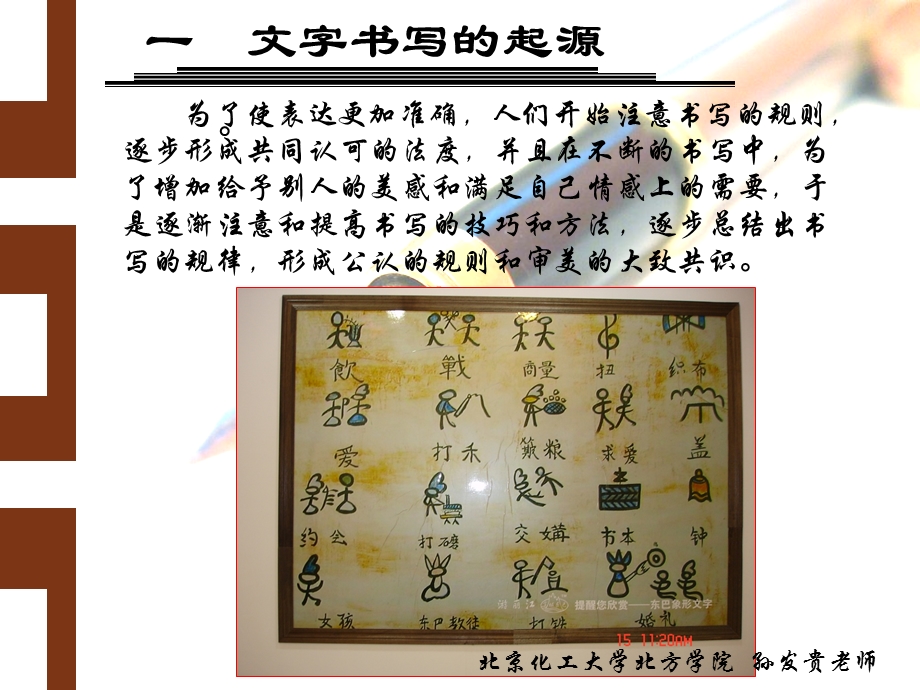 一 文字书写的起源
为了使表达更加准确，人们开始注意书写的规则，
。
逐步形成共同认可的法度，并且在不断的书写中，为
了增加给予别人的美感和满足自己情感上的需要，于
是逐渐注意和提高书写的技巧和方法，逐步总结出书
写的规律，形成公认的规则和审美的大致共识。
飲 戰 商量 扭 织布
爱 打禾 簸粮 求爱 盖
约会 打礳 交媾 书本 钟
女孩 东巴教徒 打铁 婚礼
提醒您欣赏——东巴象形文字
15 11:20AM
北京化工大学北方学院 孙发贵老师